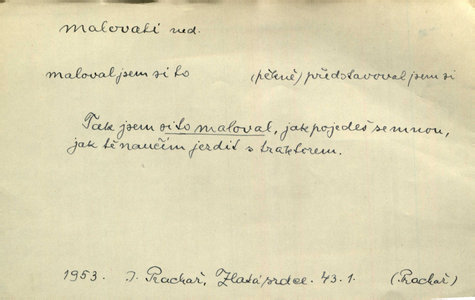 malovati ned.
maloval jsem si to (pěkně) představoval jsem si
Tak jsem si to maloval, jak pojedeš se mnou,
jak tě naučím jezdit s traktorem.
1953. J. Prachař, Zlatá srdce. 43.1. (Prachař)